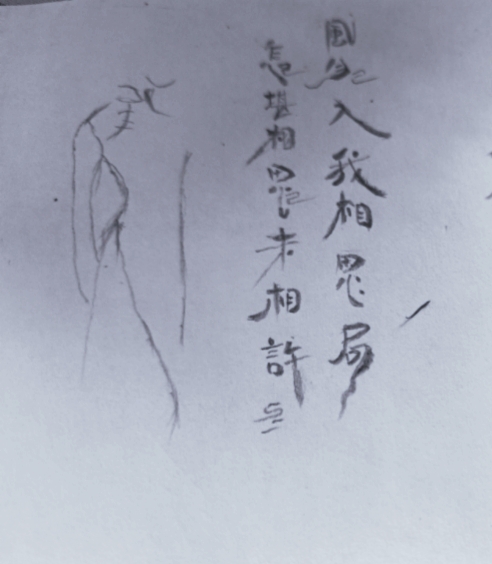 風入我相思局
怎堪相思未相許